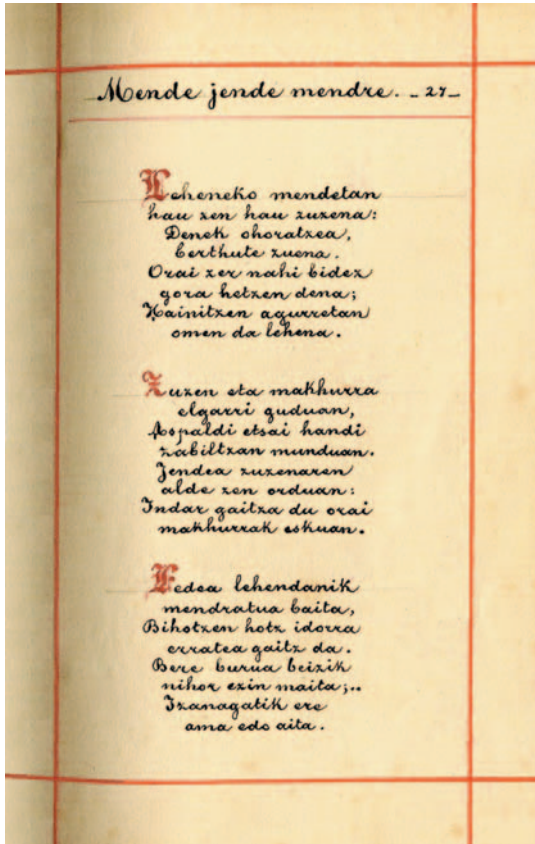 Mende jende mendre. _ 27 _
Leheneko mendetan
hau zen hau zuzena:
Denek ohoratzea,
berthute zuena.
Orai zer nahi bidez
gora hetzen dena;
Hainitzen agurretan
omen da lehena.
Zuzen eta makhurra
elgarri guduan,
Aspaldi etsai handi
zabiltzan munduan.
Jendea zuzenaren
alde zen orduan:
Indar gaitza du orai
makhurrak eskuan.
Fedea lehendanik
mendratua baita,
Bihotzen hotz idorra
erratea gaitz da.
Bere burua beizik
nihor ezin maita;..
Izanagatik ere
ama edo aita.